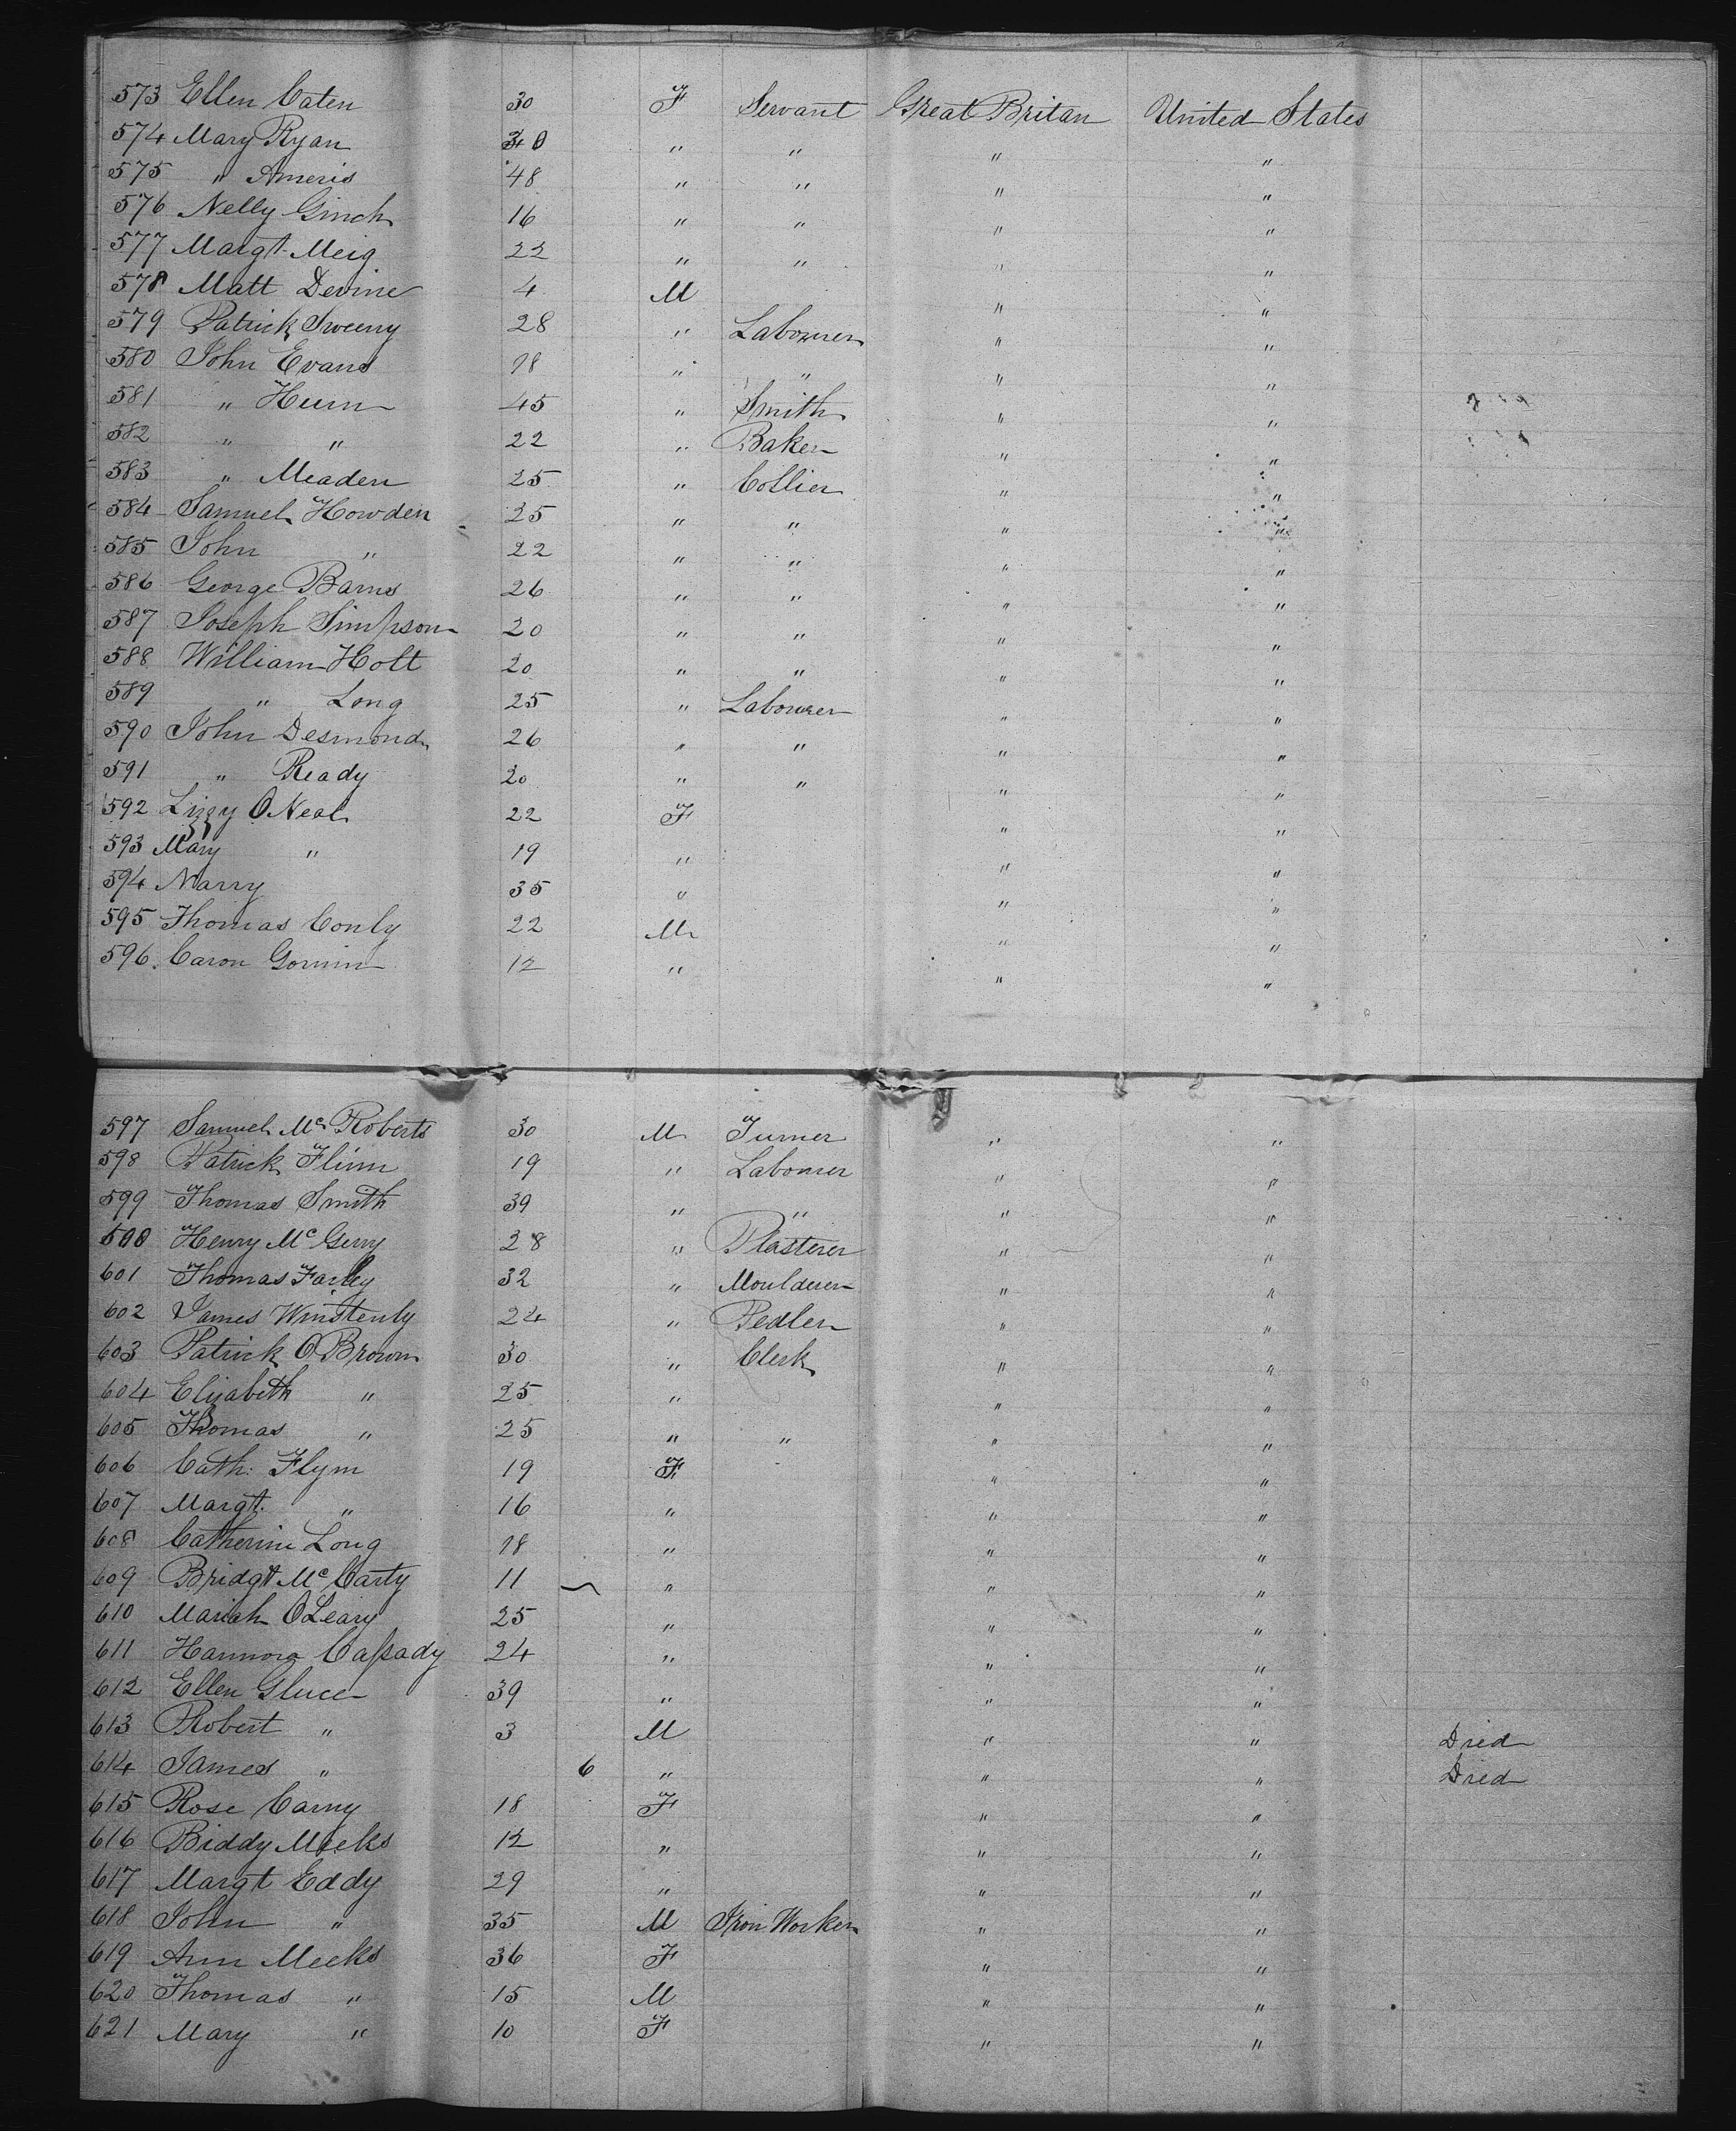 573 Ellen Caten 30 F Servant Great Britan United States
574 Mary Ryan 30 " " " "
575 " Ameris 48 " " " "
576 Nelly Ginch 16 " " " "
577 Margt Meig 22 " " " "
578 Matt Devine 4 M " "
579 Patrick Sweeny 28 " Labourer " "
580 John Evans 18 " " " "
581 " Hurn 45 " Smith " "
582 " " 22 " Baker " "
583 " Meaden 25 " Collier " "
584 Samuel Howden 25 " " " "
585 John " 22 " " " "
586 George Barns 26 " " " "
587 Joseph Simpson 20 " " " "
588 William Holt 20 " " " "
589 " Long 25 " Labourer " "
590 John Desmond 26 " " " "
591 " Ready 20 " " " "
592 Lizzy O Neal 22 F " "
593 Mary " 19 " " "
594 Narry 35 " " "
595 Thomas Conly 22 M " "
596. Caron Gornin 12 " " "
597 Samuel Mc Roberts 30 M Turner " "
598 Patrick Flinn 19 " Labourer " "
599 Thomas Smith 39 " " " "
500 Henry Mc Gerry 28 " Plasterer " "
601 Thomas Farley 32 " Moulderer " "
602 James Winstenly 24 " Pedler " "
603 Patrick O Brown 30 " Clerk " "
604 Elizabeth " 25 " " "
605 Thomas " 25 " " " "
606 Cath: Flynn 19 F " "
607 Margt. " 16 " " "
608 Catherine Long 18 " " "
609 Bridgt Mc Carty 11 " " "
610 Mariah O Leary 25 " " "
611 Hannora Cassady 24 " " "
612 Ellen Gluce 39 " " "
613 Robert " 3 M " " Died
614 James " 6 " " " Died
615 Rose Carny 18 F " "
616 Biddy Meeks 12 " " "
617 Margt Eddy 29 " " "
618 John " 35 M Iron Worker " "
619 Ann Meeks 36 F " "
620 Thomas " 15 M " "
621 Mary " 10 F " "